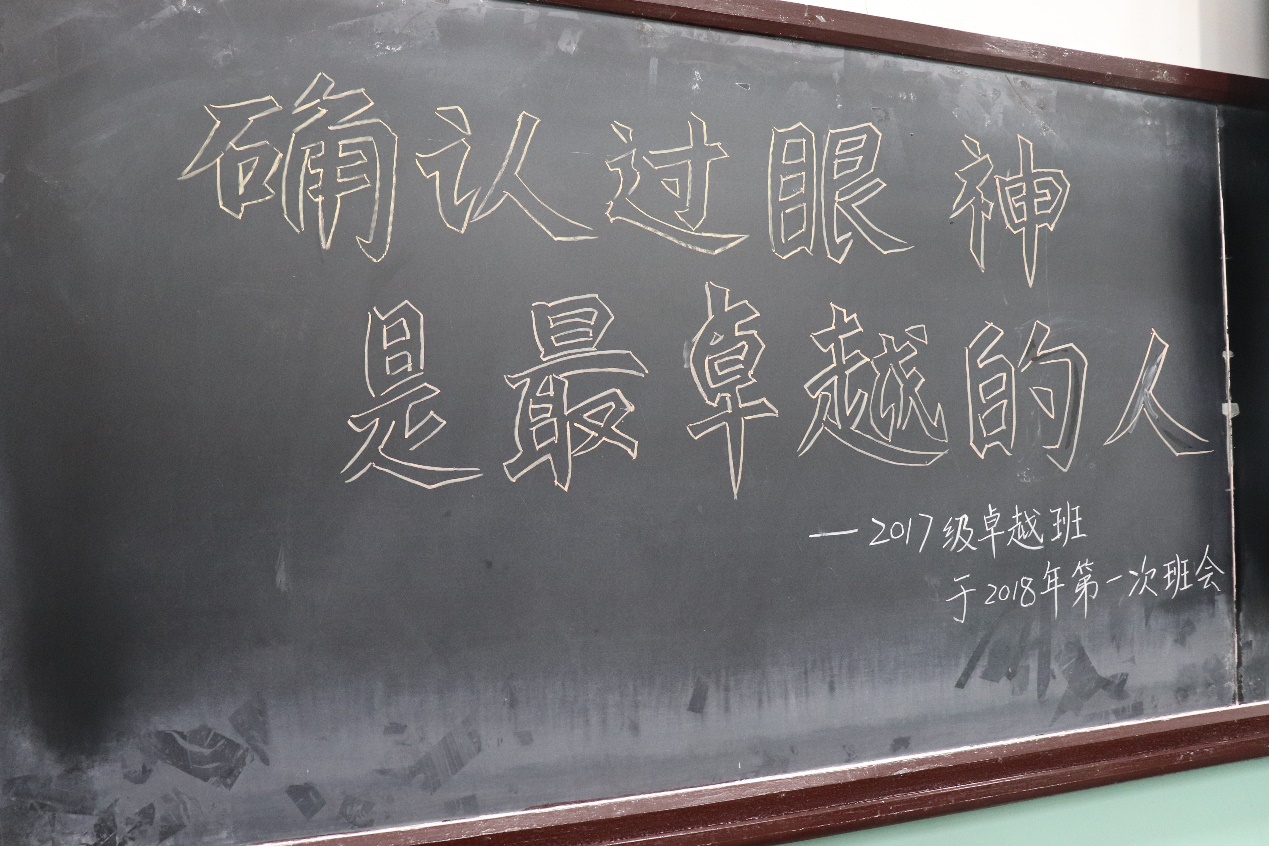 确认过眼神
是最卓越的人
—2017级卓越班
于2018年第一次班会